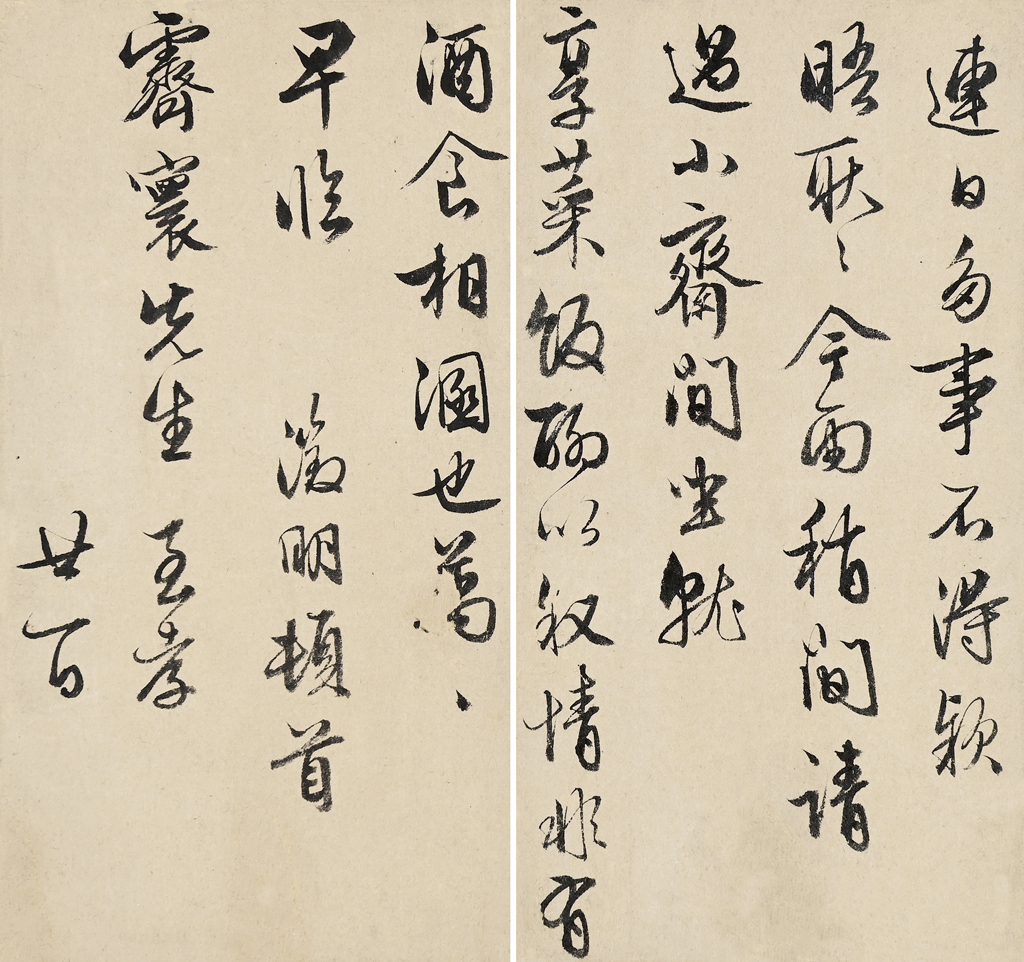 連日多事不得款
晤耿〻今雨稍閒請
過小齋閒坐就
享菜飯聊以敘情非有
酒食相溷也萬〻
早臨 徵明頓首
霽寰先生至孝
廿一日